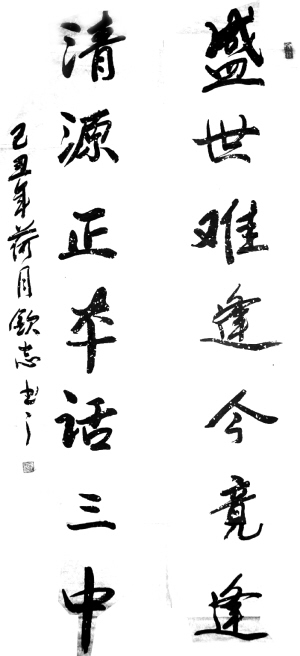 盛世难逢今竟逢
清源正本话三中
己丑年荷月钦志书